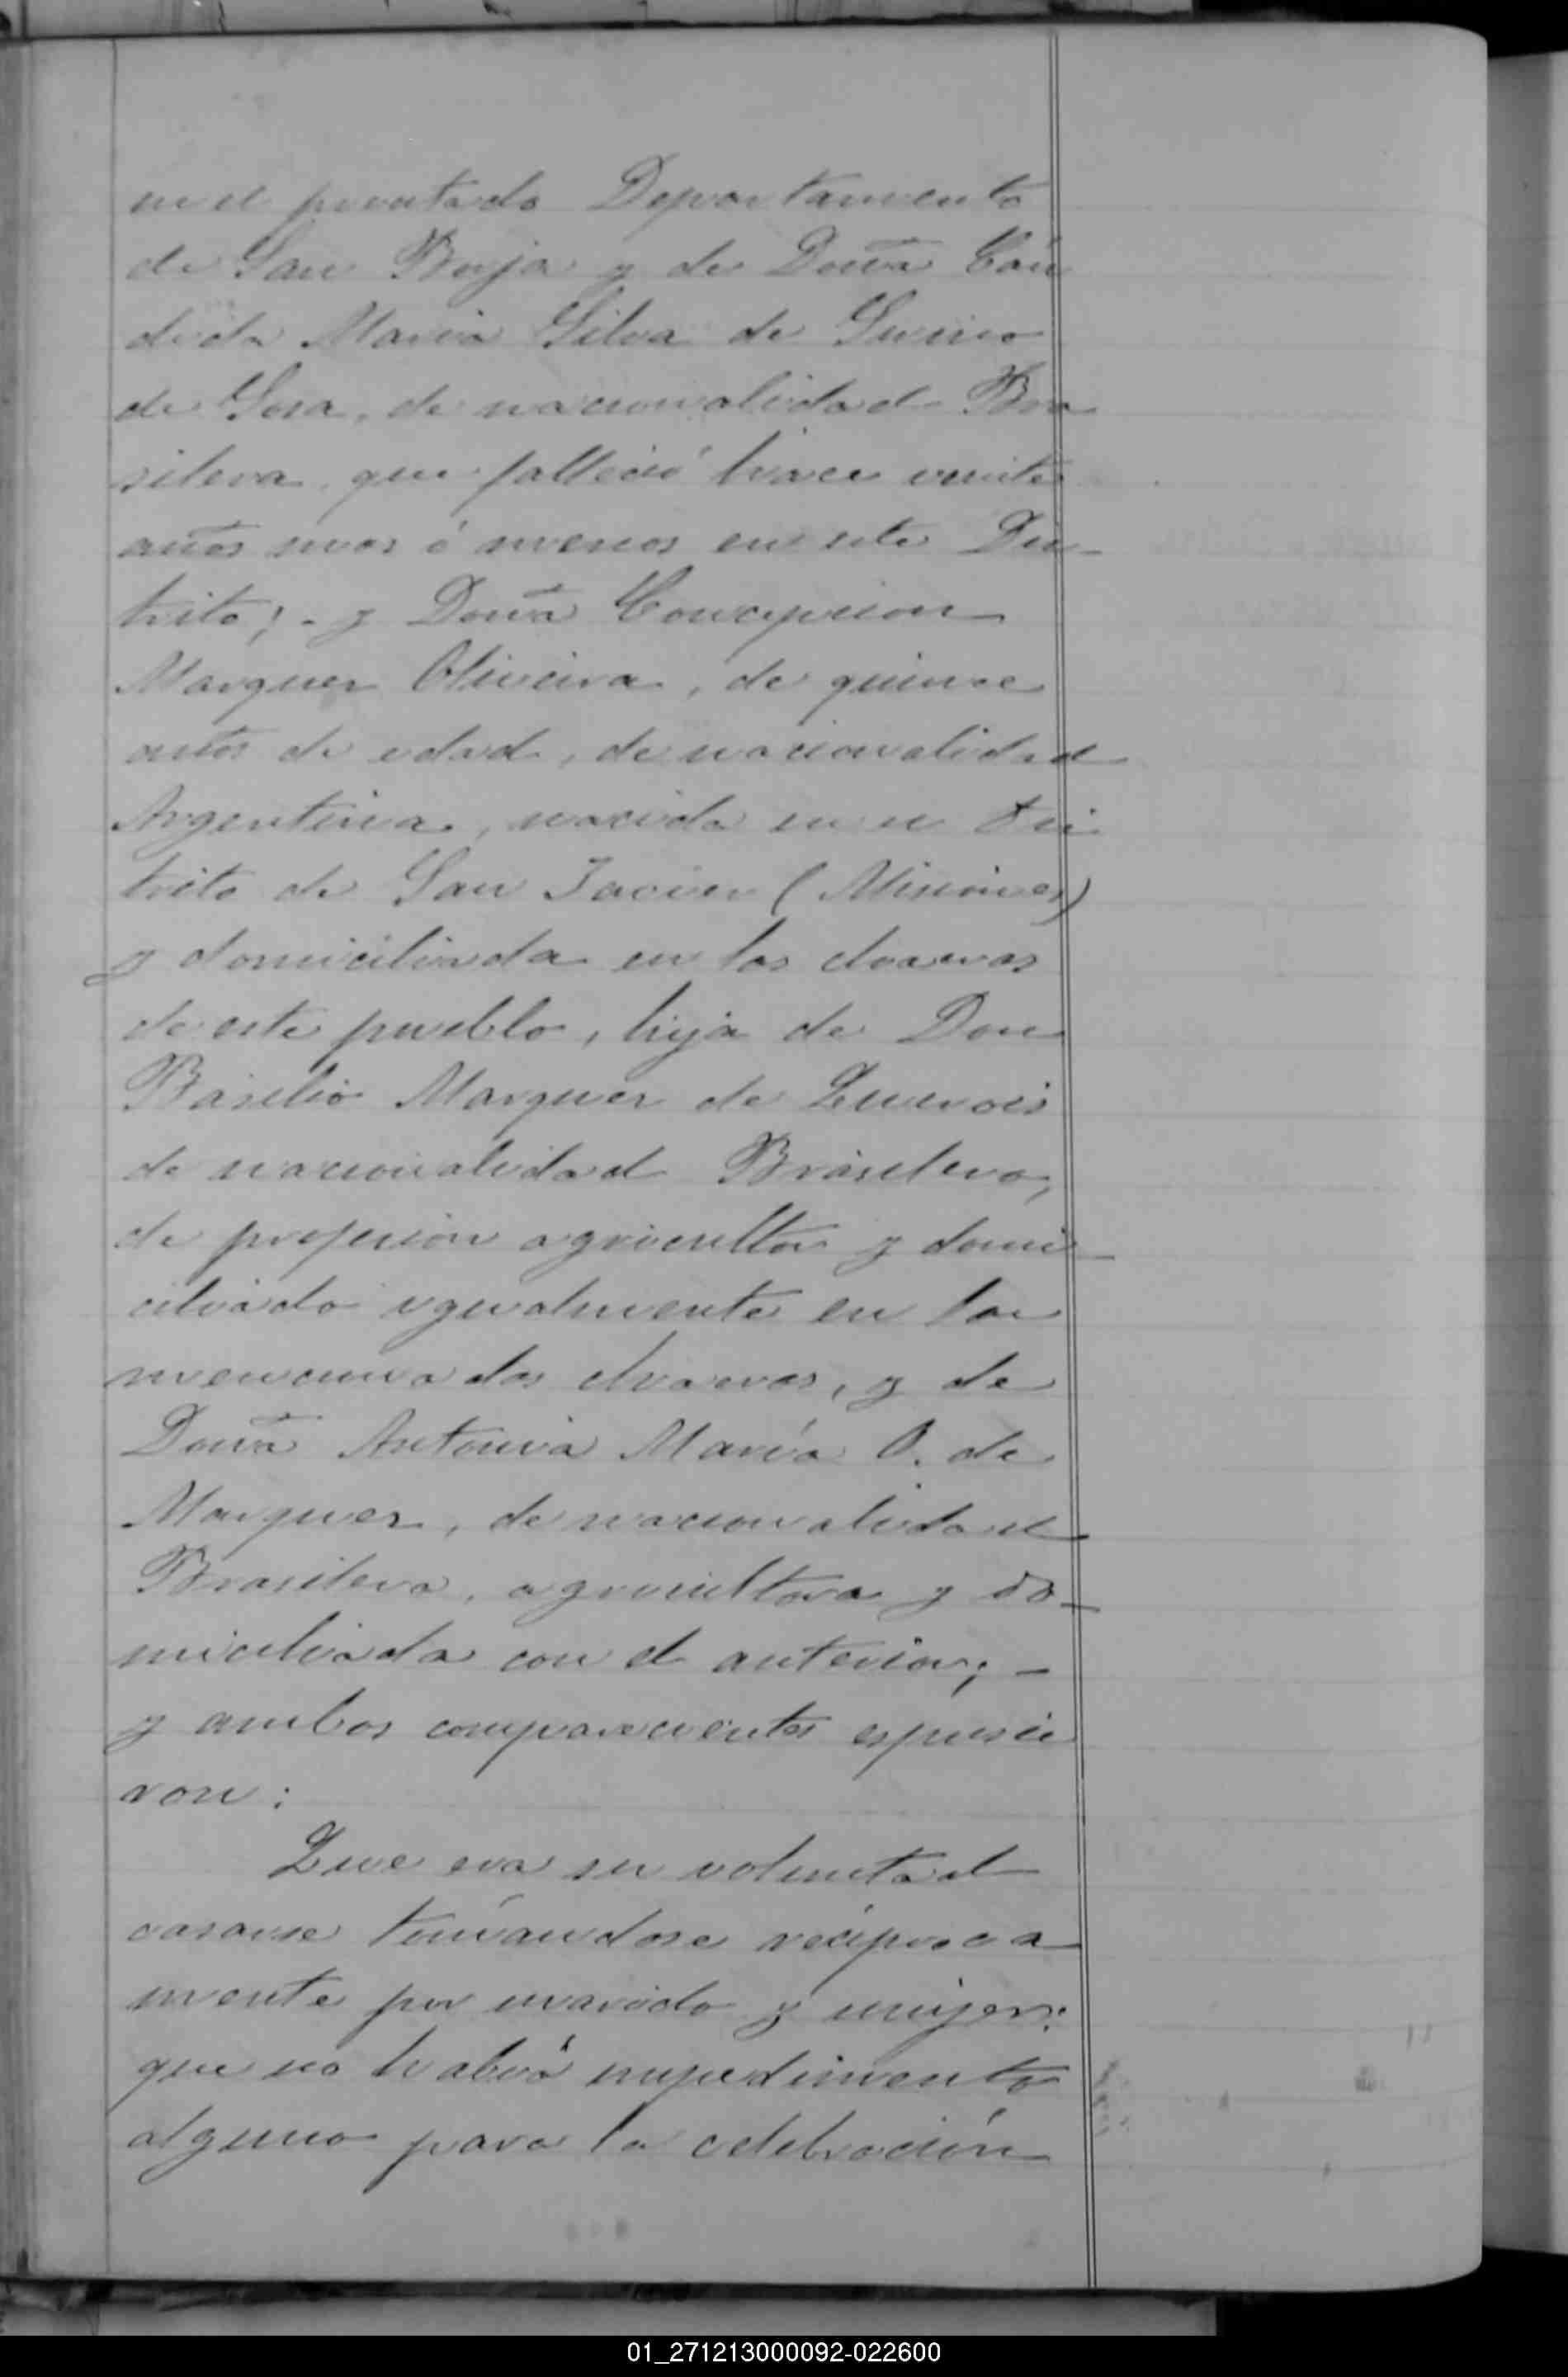 en el precitado Departamento
de San Borja y de Doña Cán
dida Maria Silva de
de Sosa, de nacionalidad Bra
silera, que falleció hace veinte
años mas ó menos en este Dis-
trito; - y Doña Concepcion
Marquez Oliveira, de quince
años de edad, de nacionalidad
Argentina, nacida en el Dis
trito de San Javier (Misiones)
y domiciliada en las chacras
de este pueblo, hija de Don
Basilio Marquez de
de nacionalidad Brasilero,
de profesion agricultor y domi-
ciliado igualmente en las
mencionadas chacras, y de
Doña Antonia María O. de
Marquez, de nacionalidad
Brasilera, agricultora y do-
miciliada con el anterior; -
y ambos comparecientes espusie
ron:
Que era su voluntad
casarse tomándose recíproca
mente por marido y mujer:
que no habia impedimento
alguno para la celebración
01_271213000092-022600